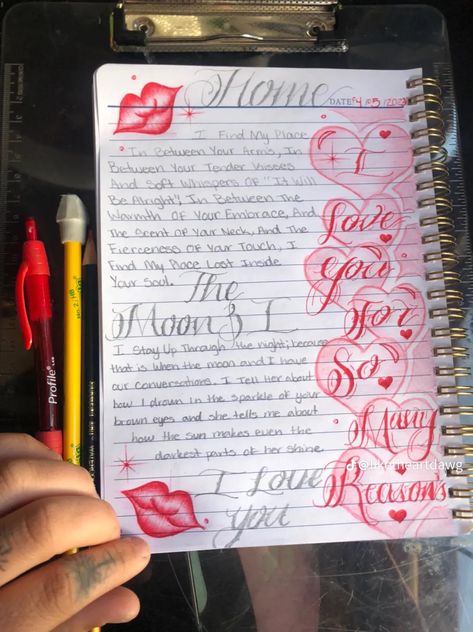 Home
DATE: 4/5/202
I Find My Place
In Between Your Arms, In
Between Your Tender Kisses
And Soft Whispers Of "It Will
Be Alright", In Between The
Warmth Of Your Embrace, And
The Scent Of Your Neck, And The
Fierceness Of Your Touch, I
Find My Place Lost Inside
Your Soul.
The
Moon & I
I Stay Up Through the night; because
that is when the moon and I have
our conversations. I Tell her about
how I drown in the sparkle of your
brown eyes and she tells me about
how the sun makes even the
darkest parts of her shine.
I Love
you
I
Love
You
For
So
Many
Reasons
Profile
NO. 2 / HB